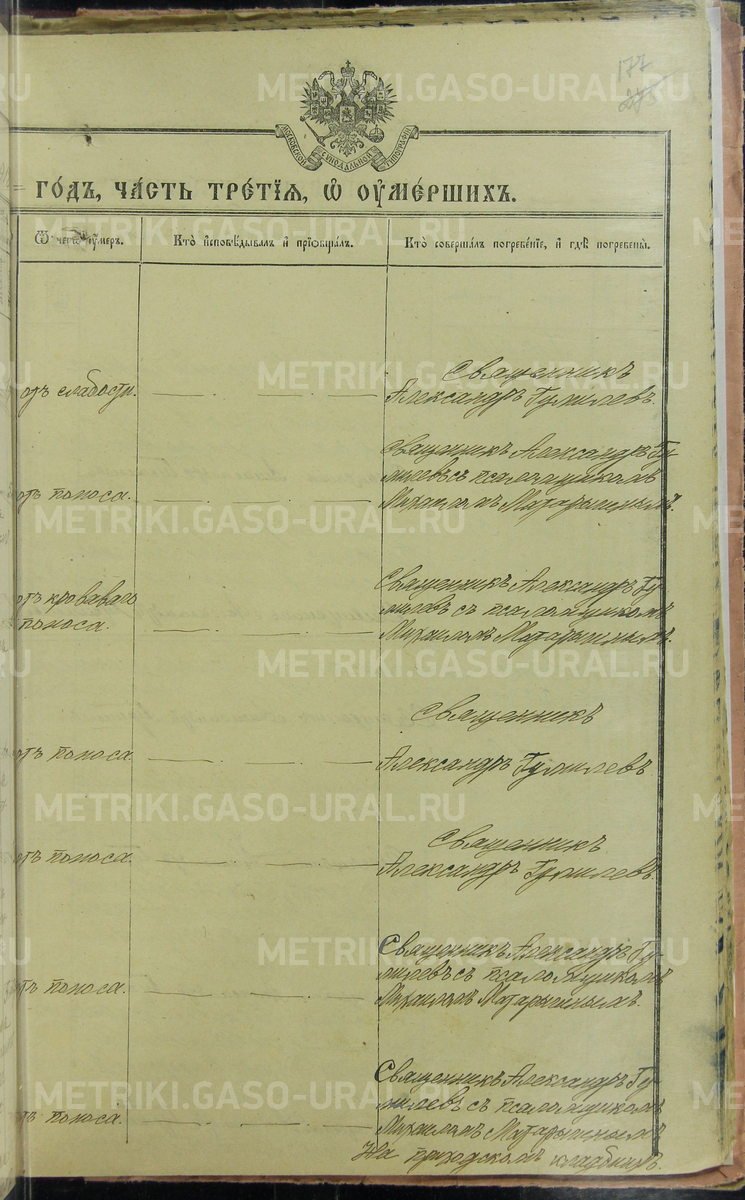 177
275
МОСКОВСКОЙ СѴНОДАЛЬНОЙ ТИПОГРАФІИ
ГОДЪ, ЧАСТЬ ТРЕТІЯ, Ѿ ОУМЕРШИХЪ.
Ѿ чегѡ оумеръ. Кто исповѣдывалъ и пріобщалъ. Кто совершалъ погребеніе, и гдѣ погребены.
отъ слабости. Священникъ
Александръ Гумилевъ.
отъ поноса. Священникъ Александръ Гу-
милевъ съ псаломщикомъ
Михаиломъ Матарыгинымъ.
отъ кроваваго Священникъ Александръ Гу-
поноса. милевъ съ псаломщикомъ
Михаиломъ Матарыгинымъ.
отъ поноса. Священникъ
Александръ Гумилевъ
отъ поноса. Священникъ
Александръ Гумилевъ.
отъ поноса. Священникъ Александръ Гу-
милевъ съ псаломщикомъ
Михаиломъ Матарыгинымъ.
отъ поноса. Священникъ Александръ Гу-
милевъ съ псаломщикомъ
Михаиломъ Матарыгинымъ
На приходскомъ кладбищѣ.
METRIKI.GASO-URAL.RU